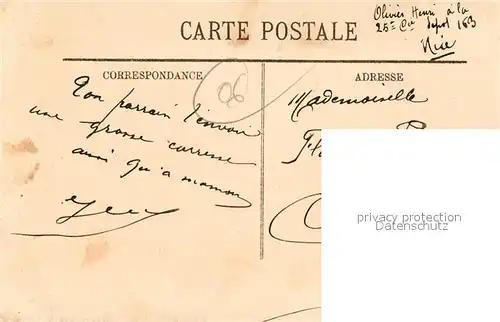 Olivier Henri à la
25e Cie Dépôt 163
Nice
CARTE POSTALE
CORRESPONDANCE
ADRESSE
06
Ton parrain t'envoie
une grosse caresse
ainsi qu'a maman
Mademoiselle
privacy protection
Datenschutz